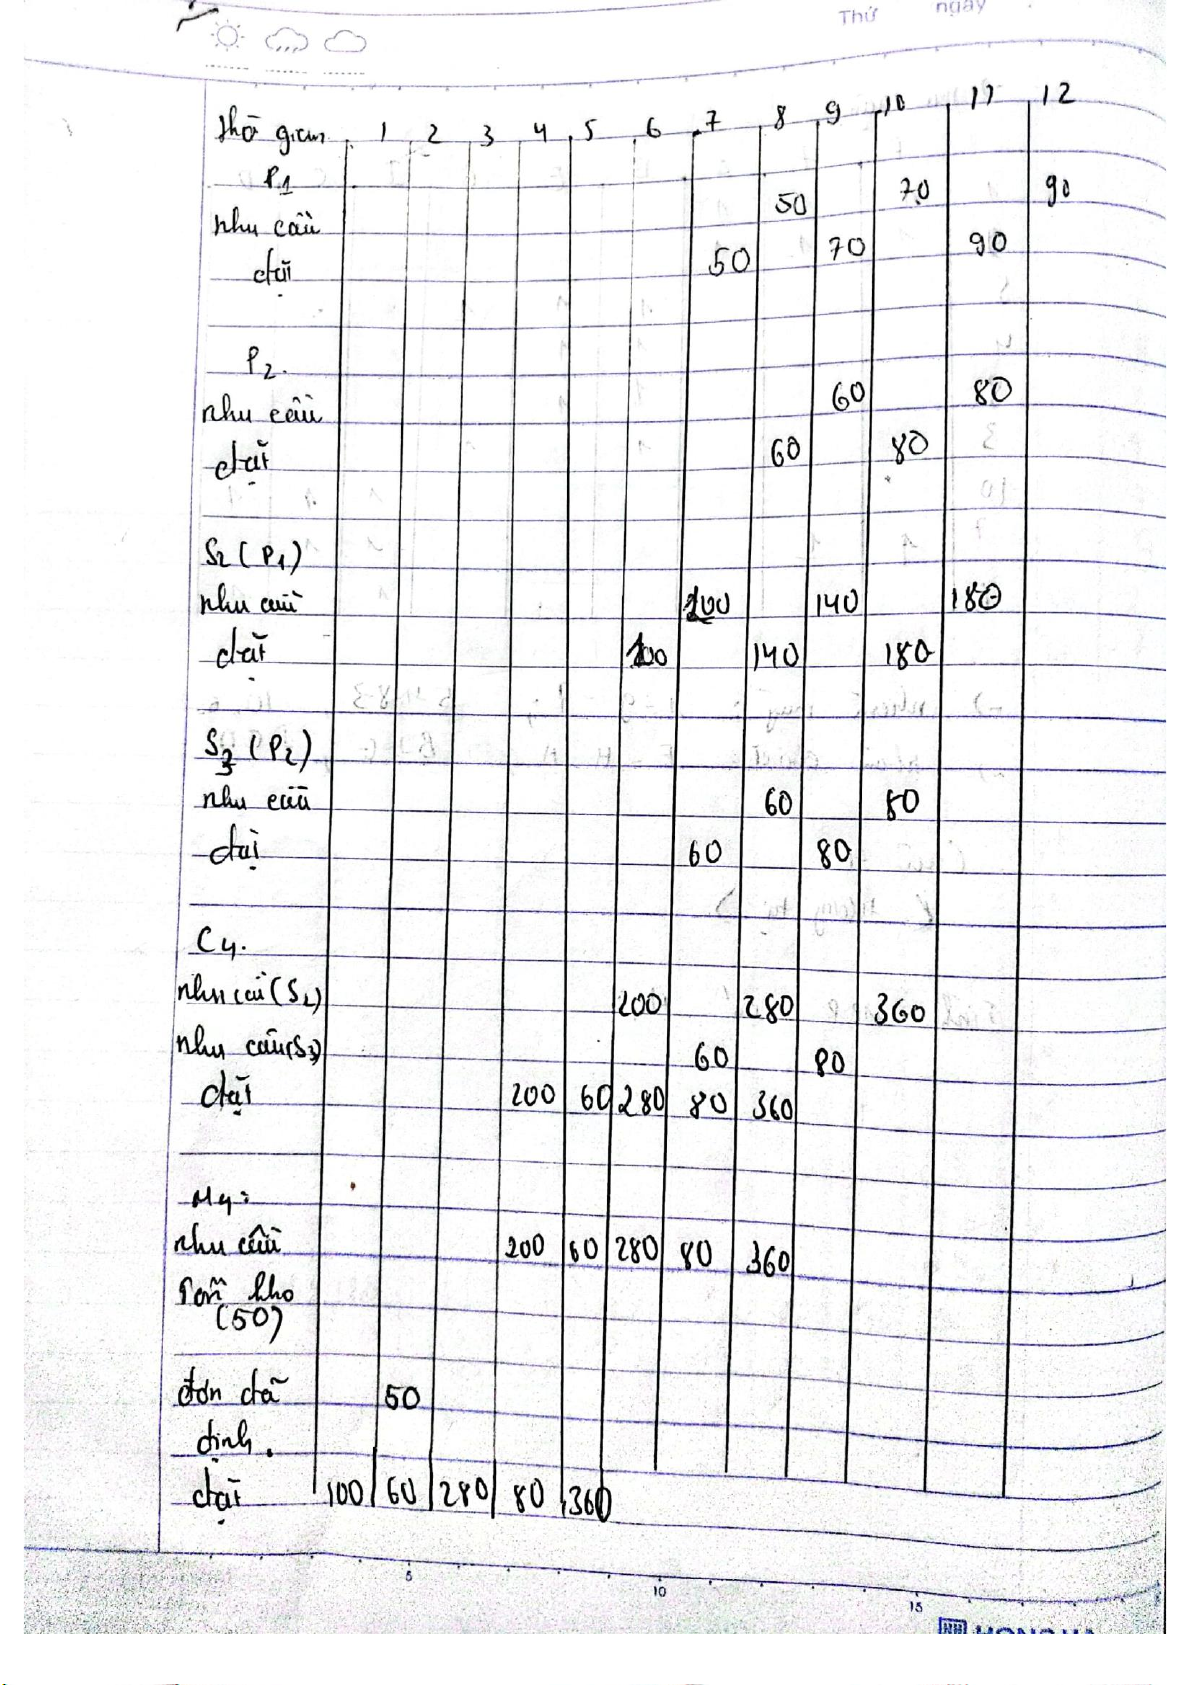 Thứ ngày
thời gian 1 2 3 4 5 6 7 8 9 10 11 12
P1
nhu cầu 50 70 90
đặt 50 70 90
P2.
nhu cầu 60 80
đặt 60 80
S2 (P1)
nhu cầu 100 140 180
đặt 100 140 180
S3 (P2)
nhu cầu 60 80
đặt 60 80
C4.
nhu cầu (S2) 200 280 360
nhu cầu (S3) 60 80
đặt 200 60 280 80 360
M4:
nhu cầu 200 60 280 80 360
Tồn kho
(50)
đơn đã 50
định.
đặt 100 60 280 80 360
5 10 15